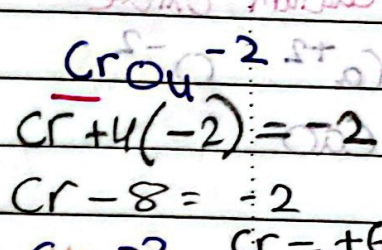 CrO4 -2
Cr + 4(-2) = -2
Cr - 8 = -2